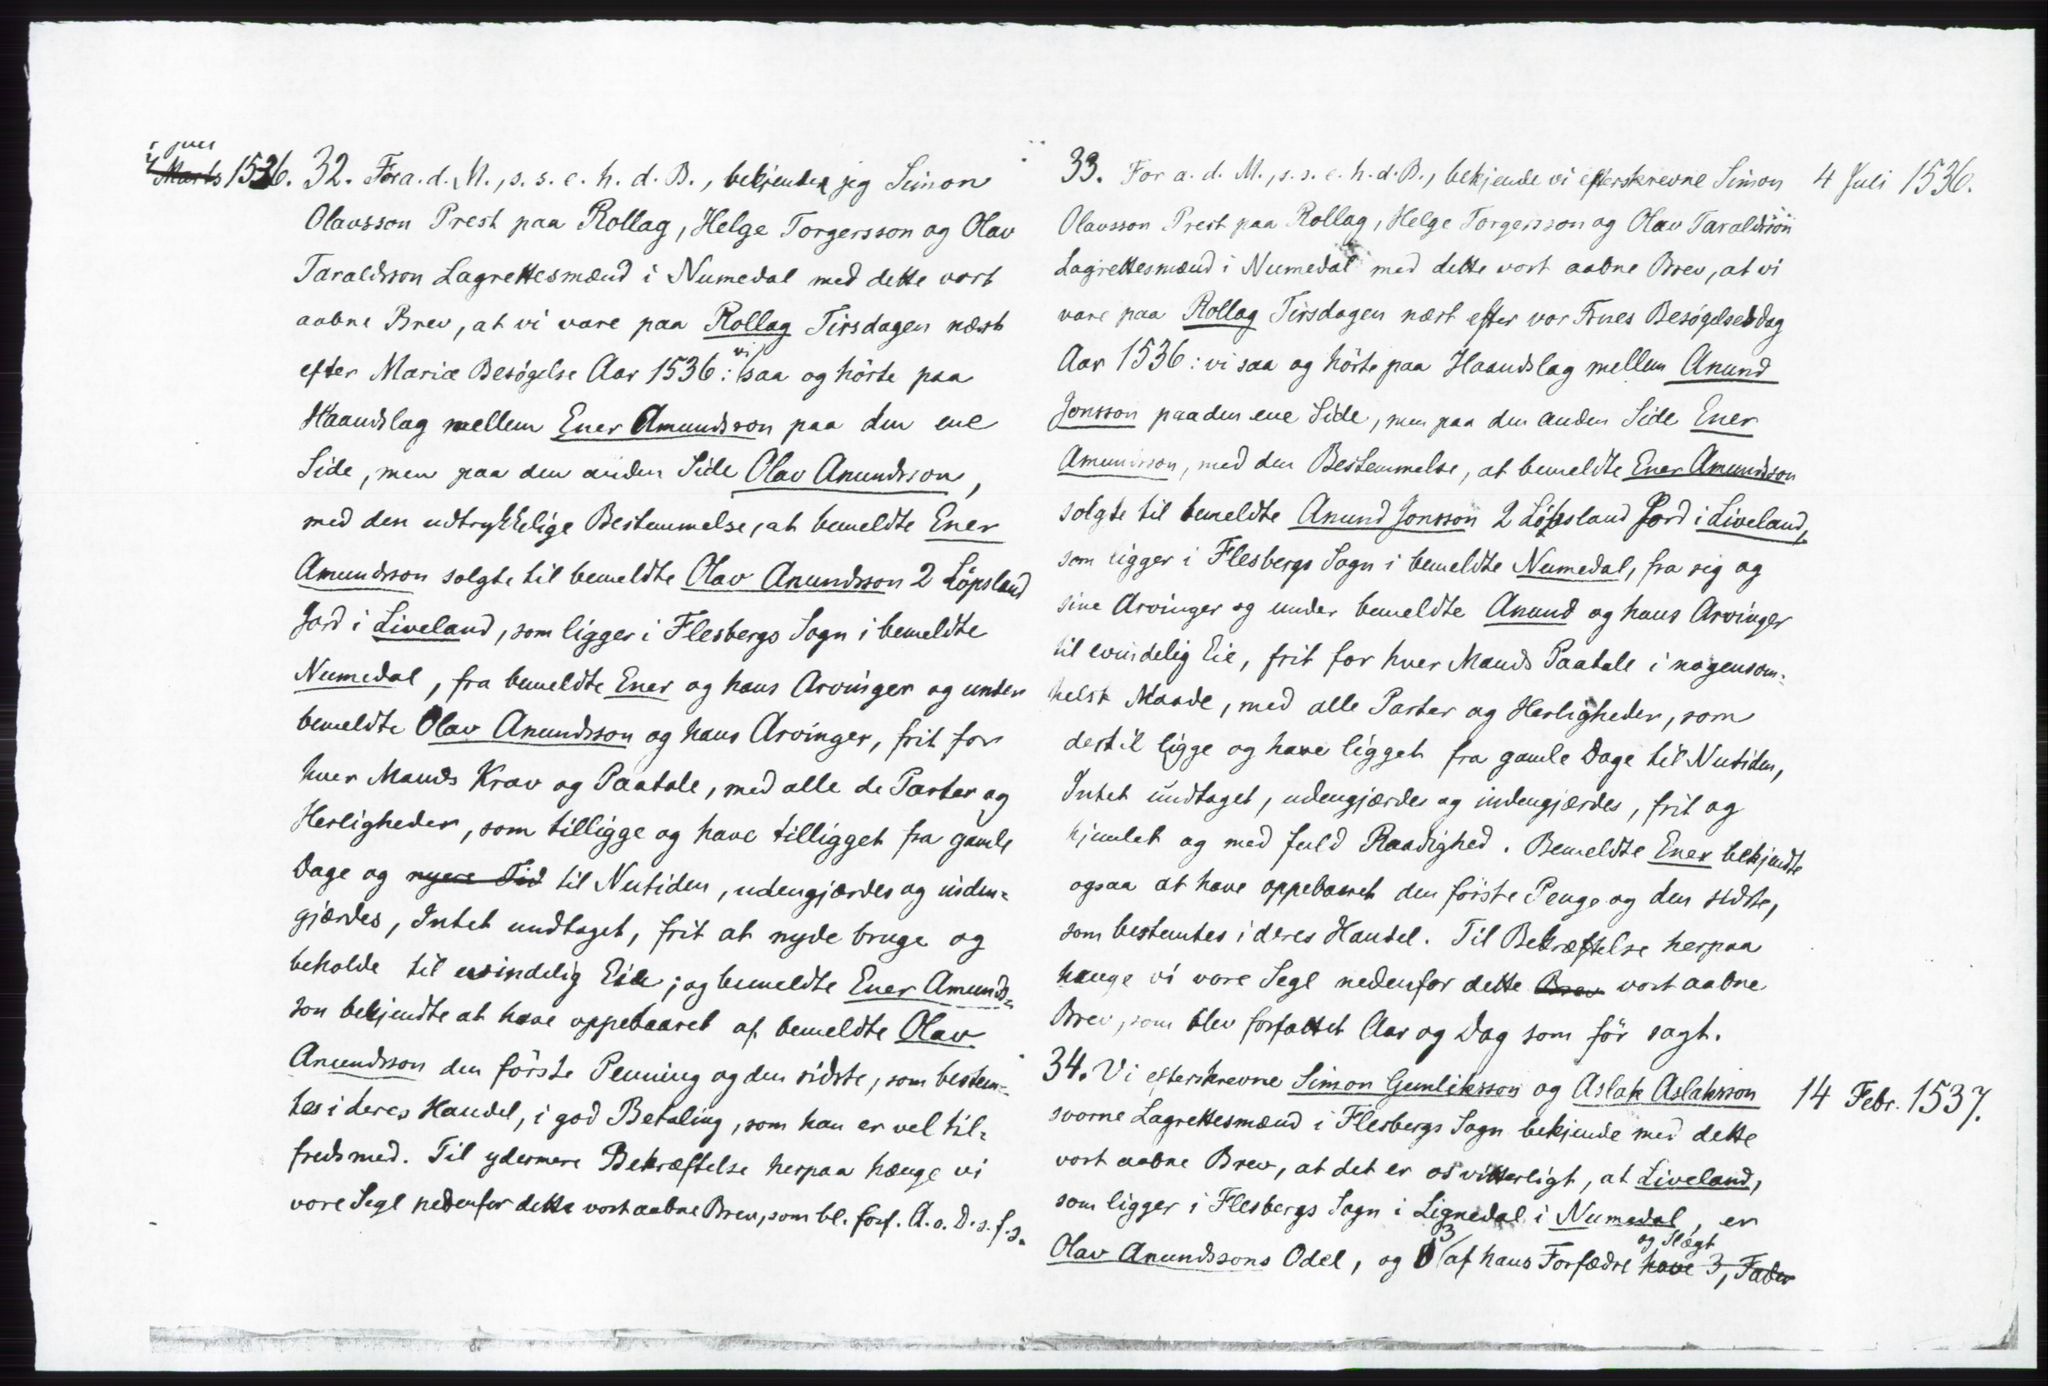 4 Juli
4 Marts 1536. 32. For a. d. M., s. s. e. h. d. B., bekjender jeg Simon
Olavsson Prest paa Rollag, Helge Torgersson og Olav
Taraldsson Lagrettesmænd i Numedal med dette vort
aabne Brev, at vi vare paa Rollag Tirsdagen næst
efter Mariæ Besøgelse Aar 1536: vi saa og hörte paa
Haandslag mellem Ener Amundsson paa den ene
Side, men paa den anden Side Olav Anundsson,
med den udtrykkelige Bestemmelse, at bemeldte Ener
Amundsson solgte til bemeldte Olav Anundsson 2 Löpsland
Jord i Liveland, som ligger i Flesbergs Sogn i bemeldte
Numedal, fra bemeldte Ener og hans Arvinger og under
bemeldte Olav Anundsson og hans Arvinger, frit for
hver Mands Krav og Paatale, med alle de Parter og
Herligheder, som tilligge og have tilligget fra gamle
Dage og nyere Tid til Nutiden, udengjærdes og inden-
gjærdes, Intet undtaget, frit at nyde bruge og
beholde til evindelig Eie; og bemeldte Ener Amunds-
son bekjendte at have oppebaaret af bemeldte Olav
Anundsson den förste Penning og den sidste, som bestem-
tes i deres Handel, i god Betaling, som han er vel til-
freds med. Til ydermere Bekræftelse herpaa hænge vi
vore Segl nedenfor dette vort aabne Brev, som bl. forf. A. o. D. s. f. s.
33. For a. d. M., s. s. e. h. d. B., bekjende vi efterskrevne Simon 4 Juli 1536.
Olavsson Prest paa Rollag, Helge Torgersson og Olav Taraldsson
Lagrettesmænd i Numedal med dette vort aabne Brev, at vi
vare paa Rollag Tirsdagen næst efter vor Frues Besøgelsesdag
Aar 1536: vi saa og hörte paa Haandslag mellem Anund
Jonsson paa den ene Side, men paa den anden Side Ener
Amundsson, med den Bestemmelse, at bemeldte Ener Amundsson
solgte til bemeldte Anund Jonsson 2 Löpsland Jord i Liveland,
som ligger i Flesbergs Sogn i bemeldte Numedal, fra sig og
sine Arvinger og under bemeldte Anund og hans Arvinger
til evindelig Eie, frit for hver Mands Paatale i nogensom-
helst Maade, med alle Parter og Herligheder, som
dertil ligge og have ligget fra gamle Dage til Nutiden,
Intet undtaget, udengjærdes og indengjærdes, frit og
hjemlet og med fuld Raadighed. Bemeldte Ener bekjendte
ogsaa at have oppebaaret den förste Penge og den sidste,
som bestemtes i deres Handel. Til Bekræftelse herpaa
hænge vi vore Segl nedenfor dette Brev vort aabne
Brev, som blev forfattet Aar og Dag som för sagt.
34. Vi efterskrevne Simon Gunleiksson og Aslak Aslaksson 14 Febr. 1537.
svorne Lagrettesmænd i Flesbergs Sogn bekjende med dette
vort aabne Brev, at det er os vitterligt, at Liveland,
som ligger i Flesbergs Sogn i Lignedal i Numedal, er
Olav Anundssons Odel, og 3 af hans Forfædre og Slægt have 3, Fader